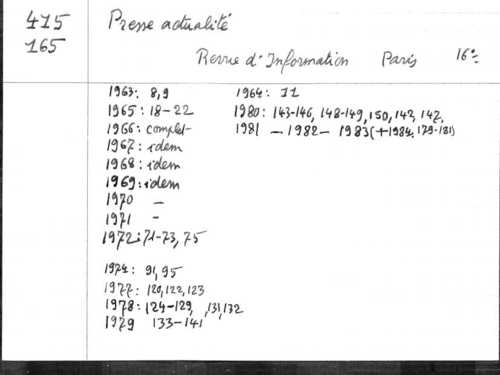 415
165
Presse actualité
Revue d'Information Paris 16°
1963: 8,9
1964: 11
1965: 18-22
1980: 143-146, 148-149, 150, 142, 147,
1966: complet
1981 - 1982 - 1983 (+1984, 179-181)
1967: idem
1968: idem
1969: idem
1970 -
1971 -
1972: 71-73, 75
1974: 91, 95
1977: 120, 122, 123
1978: 124-129, 131, 132
1979 133-141